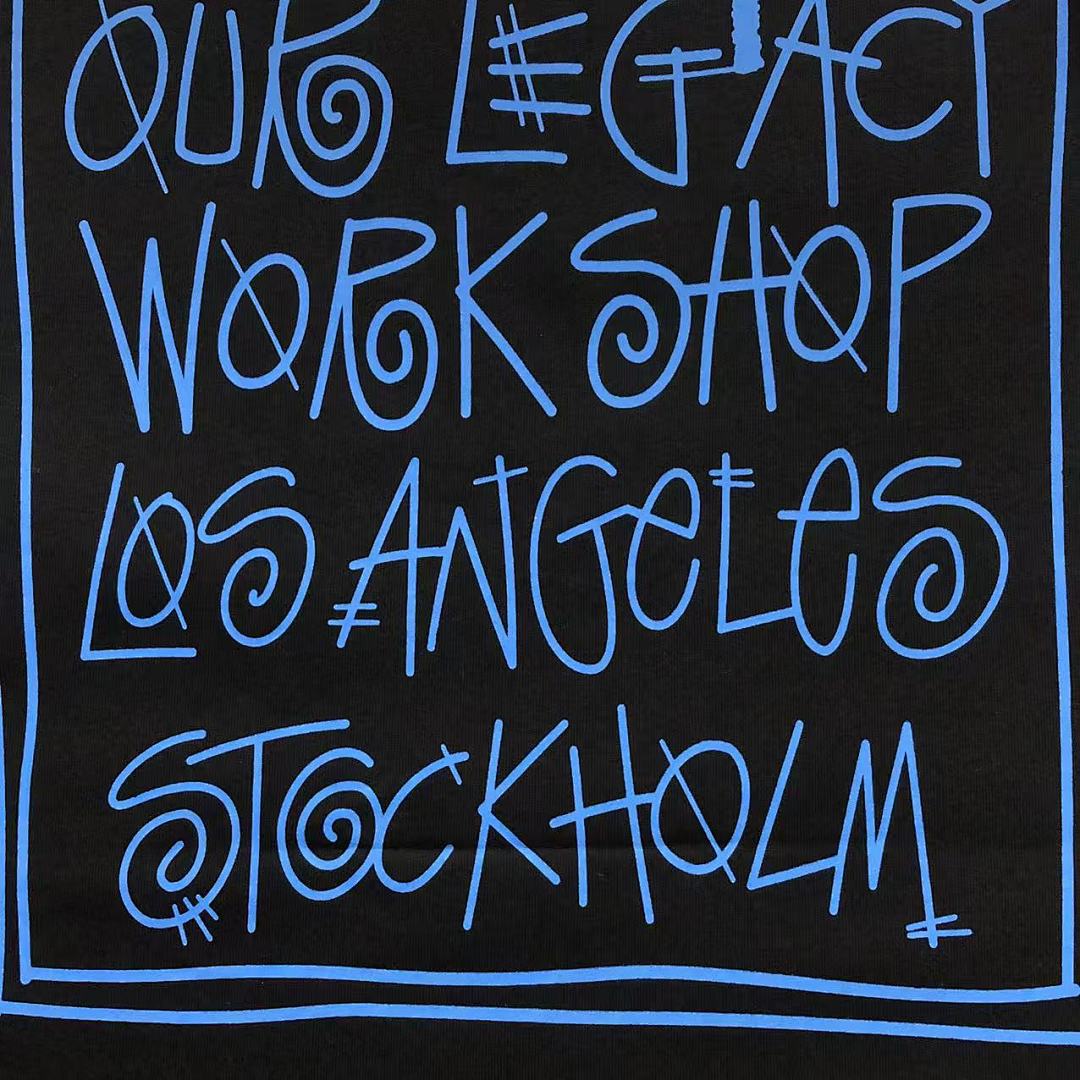 OUR LEGACY
WORK SHOP
LOS ANGELES
STOCKHOLM